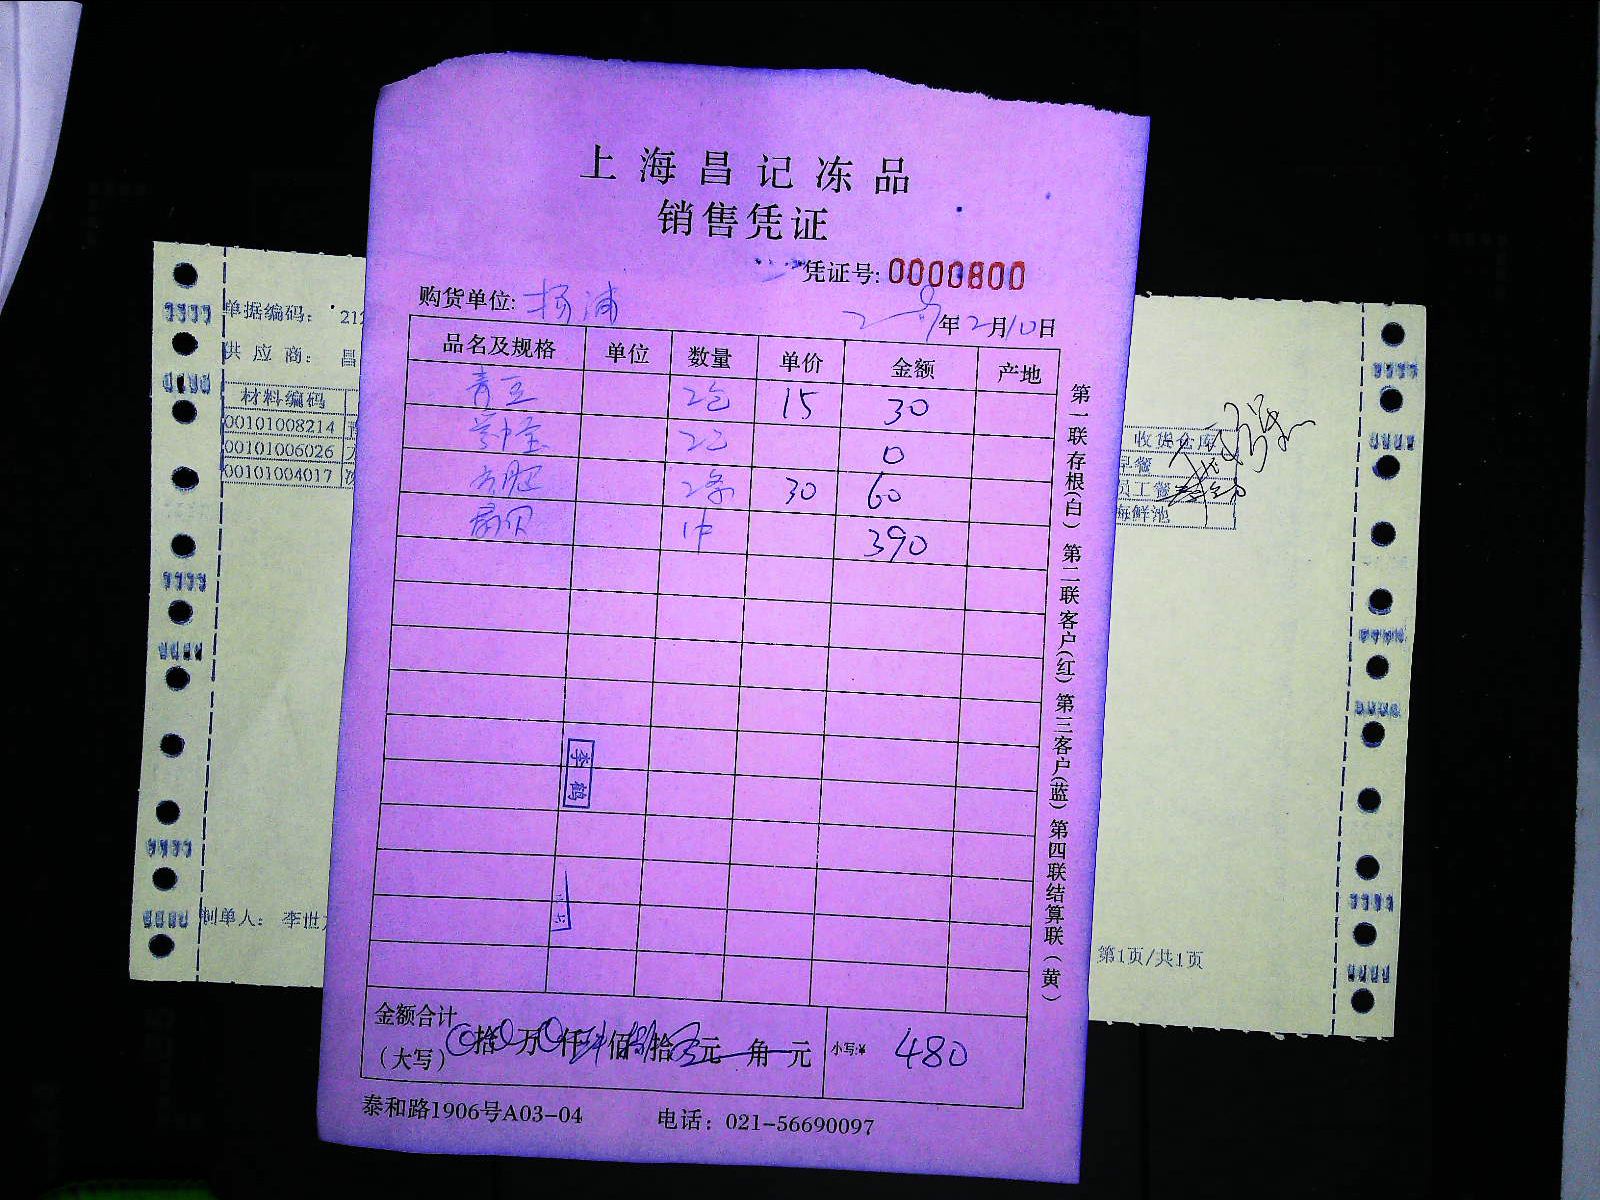 上海昌记冻品
销售凭证
凭证号: 0000800
购货单位: 杨浦
年2月10日
品名及规格 单位 数量 单价 金额 产地
青豆 2包 15 30
2 0
方腿 2条 30 60
扇贝 1件 390
金额合计
(大写) 0拾0万0仟肆佰捌拾 元 角 元 小写:¥ 480
泰和路1906号A03-04 电话: 021-56690097
第一联存根(白) 第二联客户(红) 第三客户(蓝) 第四联结算联(黄)
李鹤
单据编码: 21
供应商: 昌
材料编码
00101008214
00101006026
00101004017
制单人: 李世
收货仓库
早餐
员工餐
海鲜池
第1页/共1页